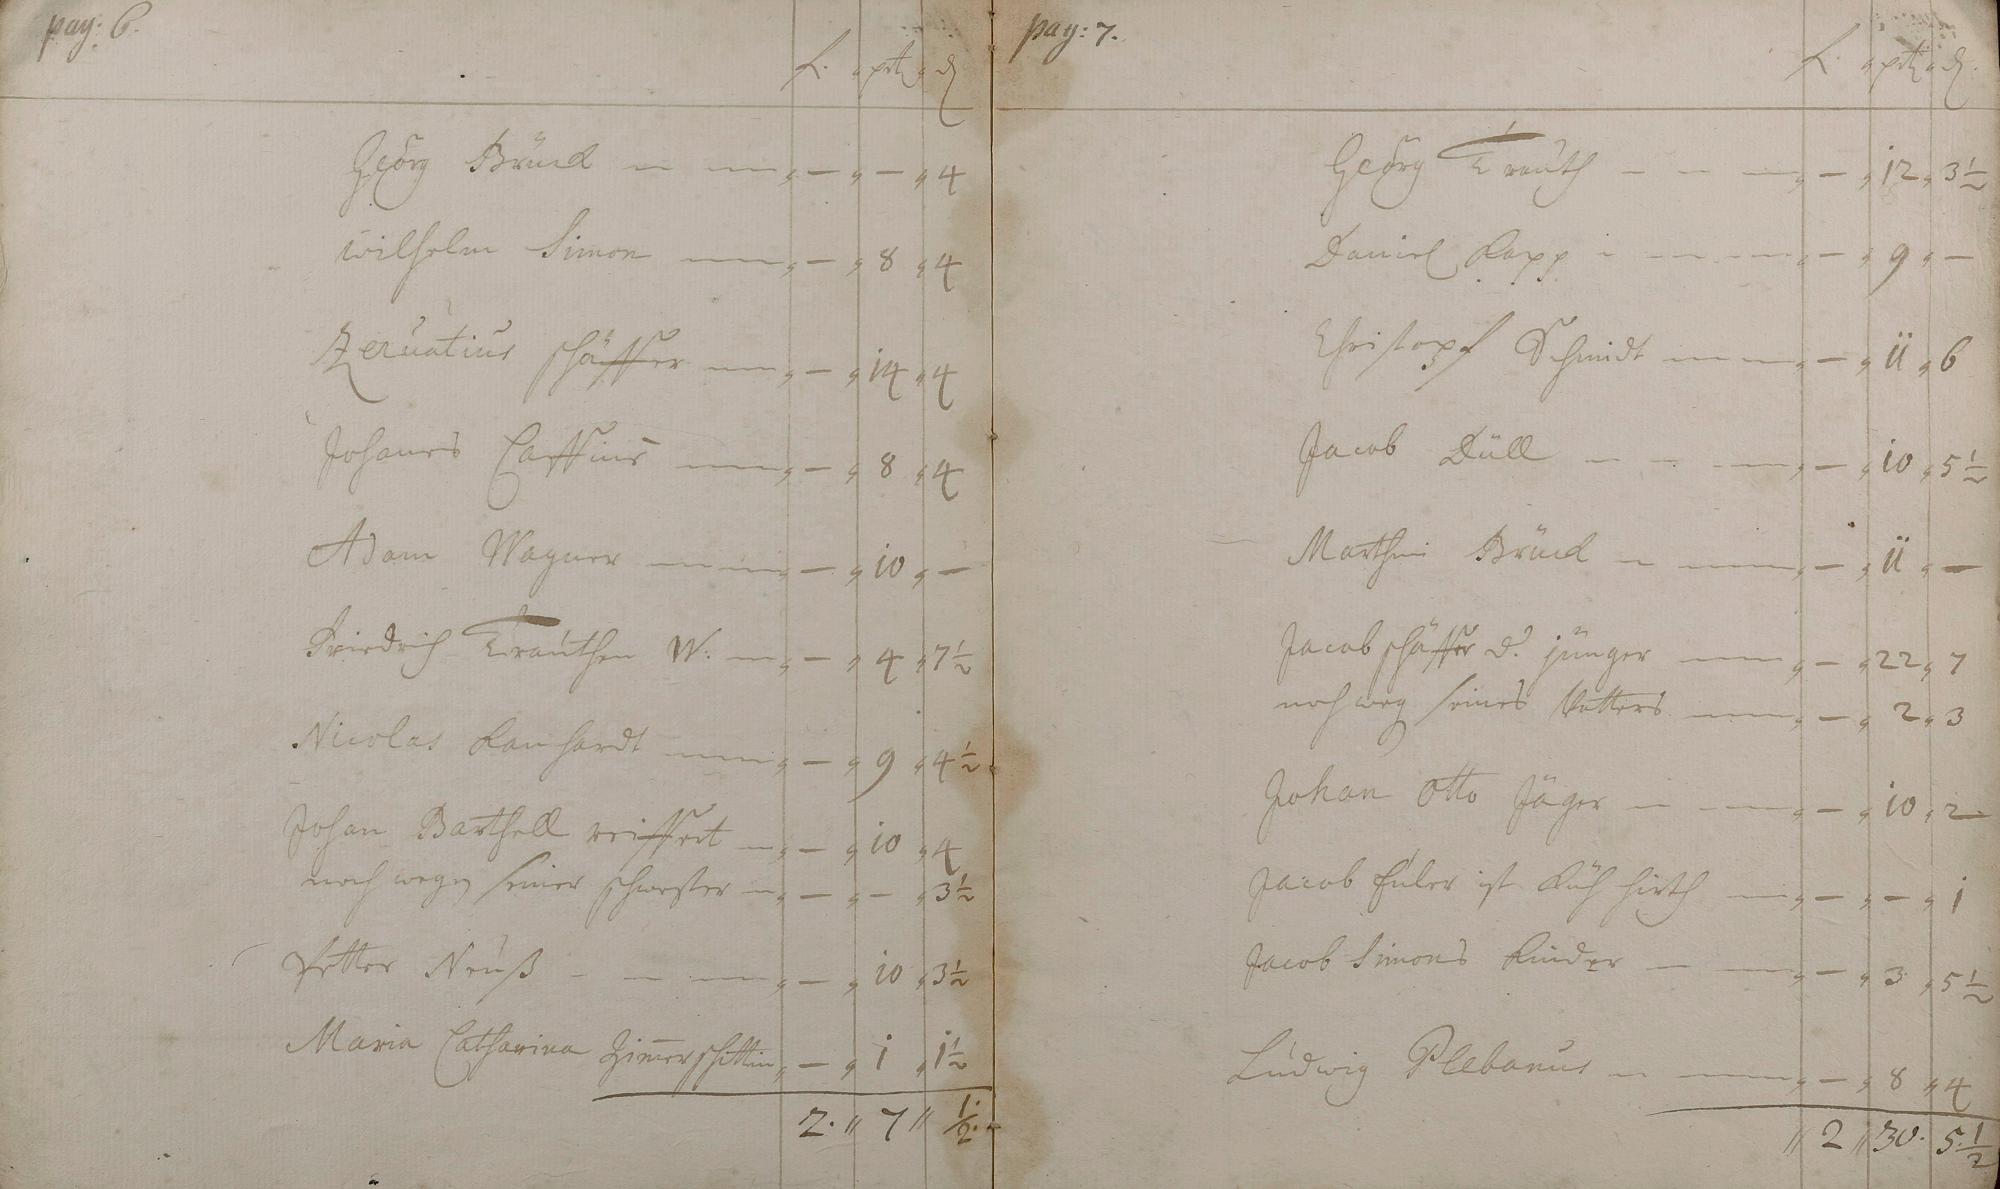 pag: 6.
f. " " ₰
Georg Brück — — " — " — " 4
Wilhelm Simon — " — " 8 " 4
Zervatius schäffer — " — " 14 " 4
Johanes Cassius — " — " 8 " 4
Adam Wagner — " — " 10 " —
Friedrich Trauthen W. — " — " 4 " 7 1/2
Nicolas Lanhardt — " — " 9 " 4 1/2
Johan Barthell reiffert — " — " 10 " 4
noch wegen seiner schwester — " — " — " 3 1/2
Petter Neuß — — " — " 10 " 3 1/2
Maria Catharina Zimerschittin " — " 1 " 1 1/2
2. " 7 " 1/2.
pag: 7.
f. " " ₰.
Georg Trauth — — — " — " 12 " 3 1/2
Daniel Rapp — — " — " 9 " —
Christopf Schmidt — " — " 11 " 6
Jacob Düll — — — " — " 10 " 5 1/2
Marthin Brück — — " — " 11 " —
Jacob schäffer d. jünger — " — " 22 " 7
noch weg seines Vatters — " — " 2 " 3
Johan Otto Jäger — — " — " 10 " 2
Jacob Euler ist Küh hirth — " — " — " 1
Jacob Simons Kinder — — " — " 3 " 5 1/2
Ludwig Plebanus — — " — " 8 " 4
" 2 " 30. 5. 1/2